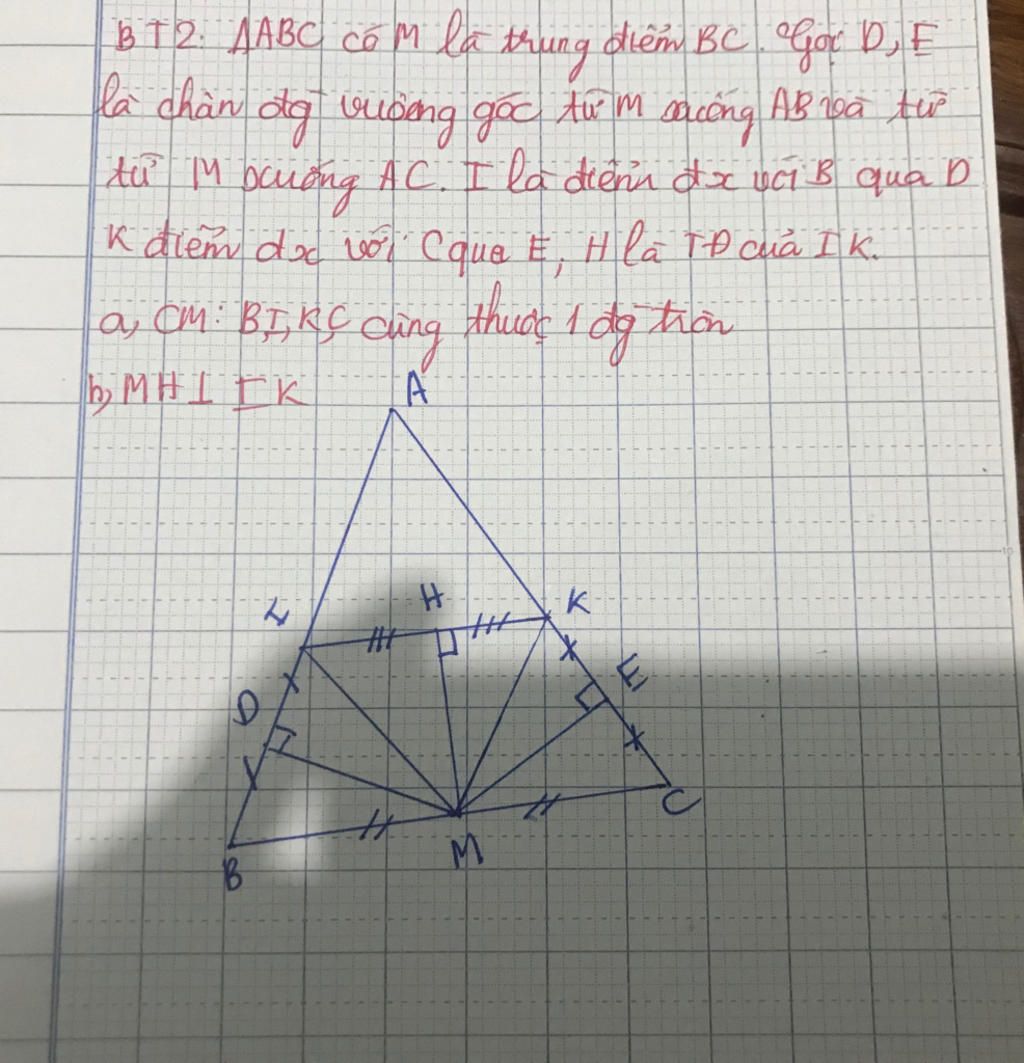 BT2. ΔABC có M là trung điểm BC. Gọi D, E
là chân đg vuông góc từ M xuống AB và từ
từ M xuống AC. I là điểm đx với B qua D
K điểm đx với C qua E, H là TĐ của IK.
a, CM: B,I,K,C cùng thuộc 1 đg tròn
b, MH⊥IK
A
I
H
K
D
E
B
M
C